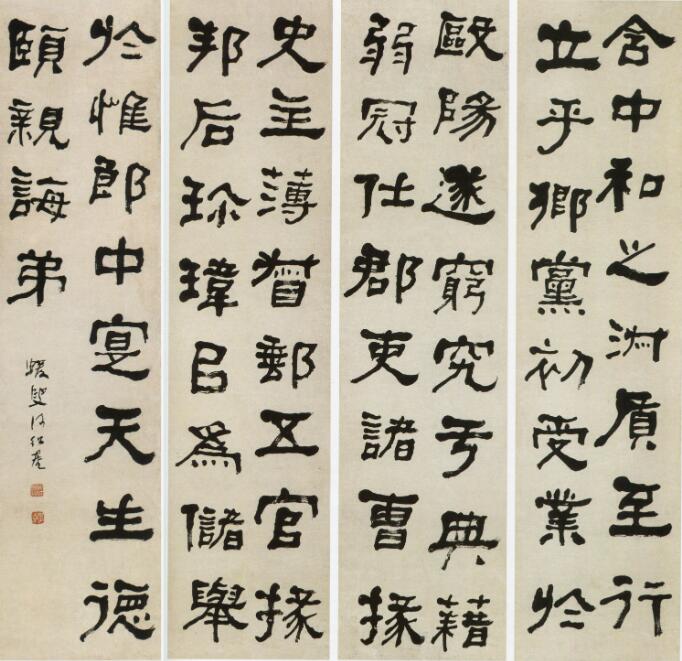 含中和之淑質至行
立乎鄉黨初受業於
歐陽遂窮究于典籍
弱冠仕郡吏諸曹掾
史主薄督郵五官掾
邦后珍瑋以為儲舉
於惟郎中寔天生德
頤親誨弟
蝯叟何紹基